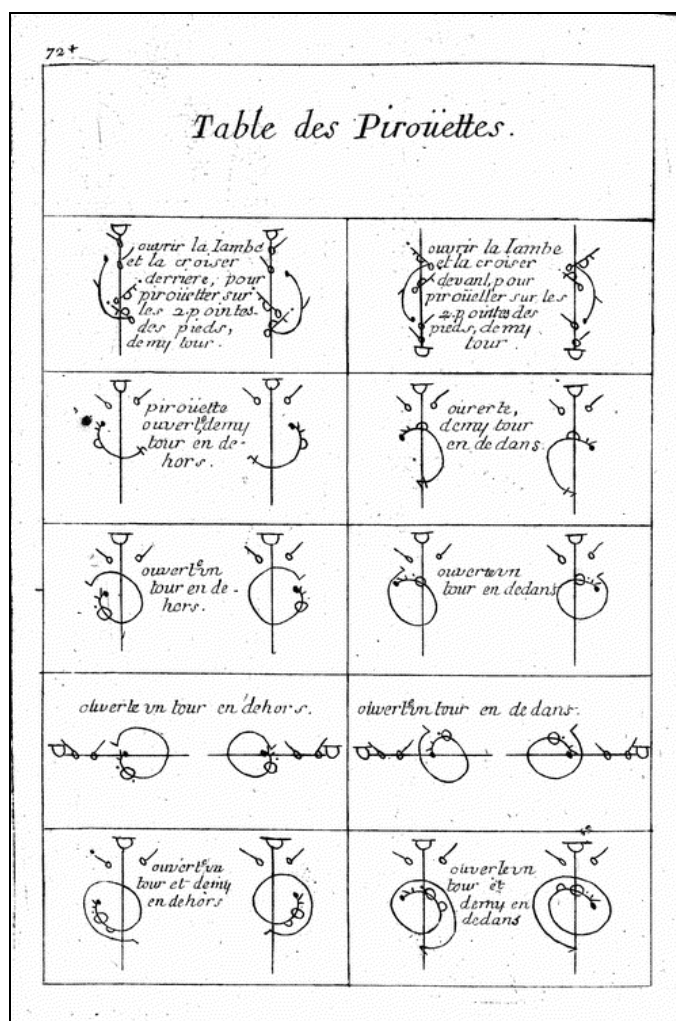 72+
Table des Piroüettes.
ouvrir la Iambe
et la croiser
derriere, pour
piroüetter sur
les 2. pointes
des pieds,
demy tour.
ouvrir la Iambe
et la croiser
devant, pour
piroüetter sur les
2. pointes des
pieds, demy
tour.
piroüette
ouverte, demy
tour en de-
hors.
ouverte,
demy tour
en dedans.
ouverte vn
tour en de-
hors.
ouverte vn
tour en dedans
ouverte vn tour en dehors.
ouverte vn tour en dedans.
ouverte vn
tour et demy
en dehors
ouverte vn
tour et
demy en
dedans